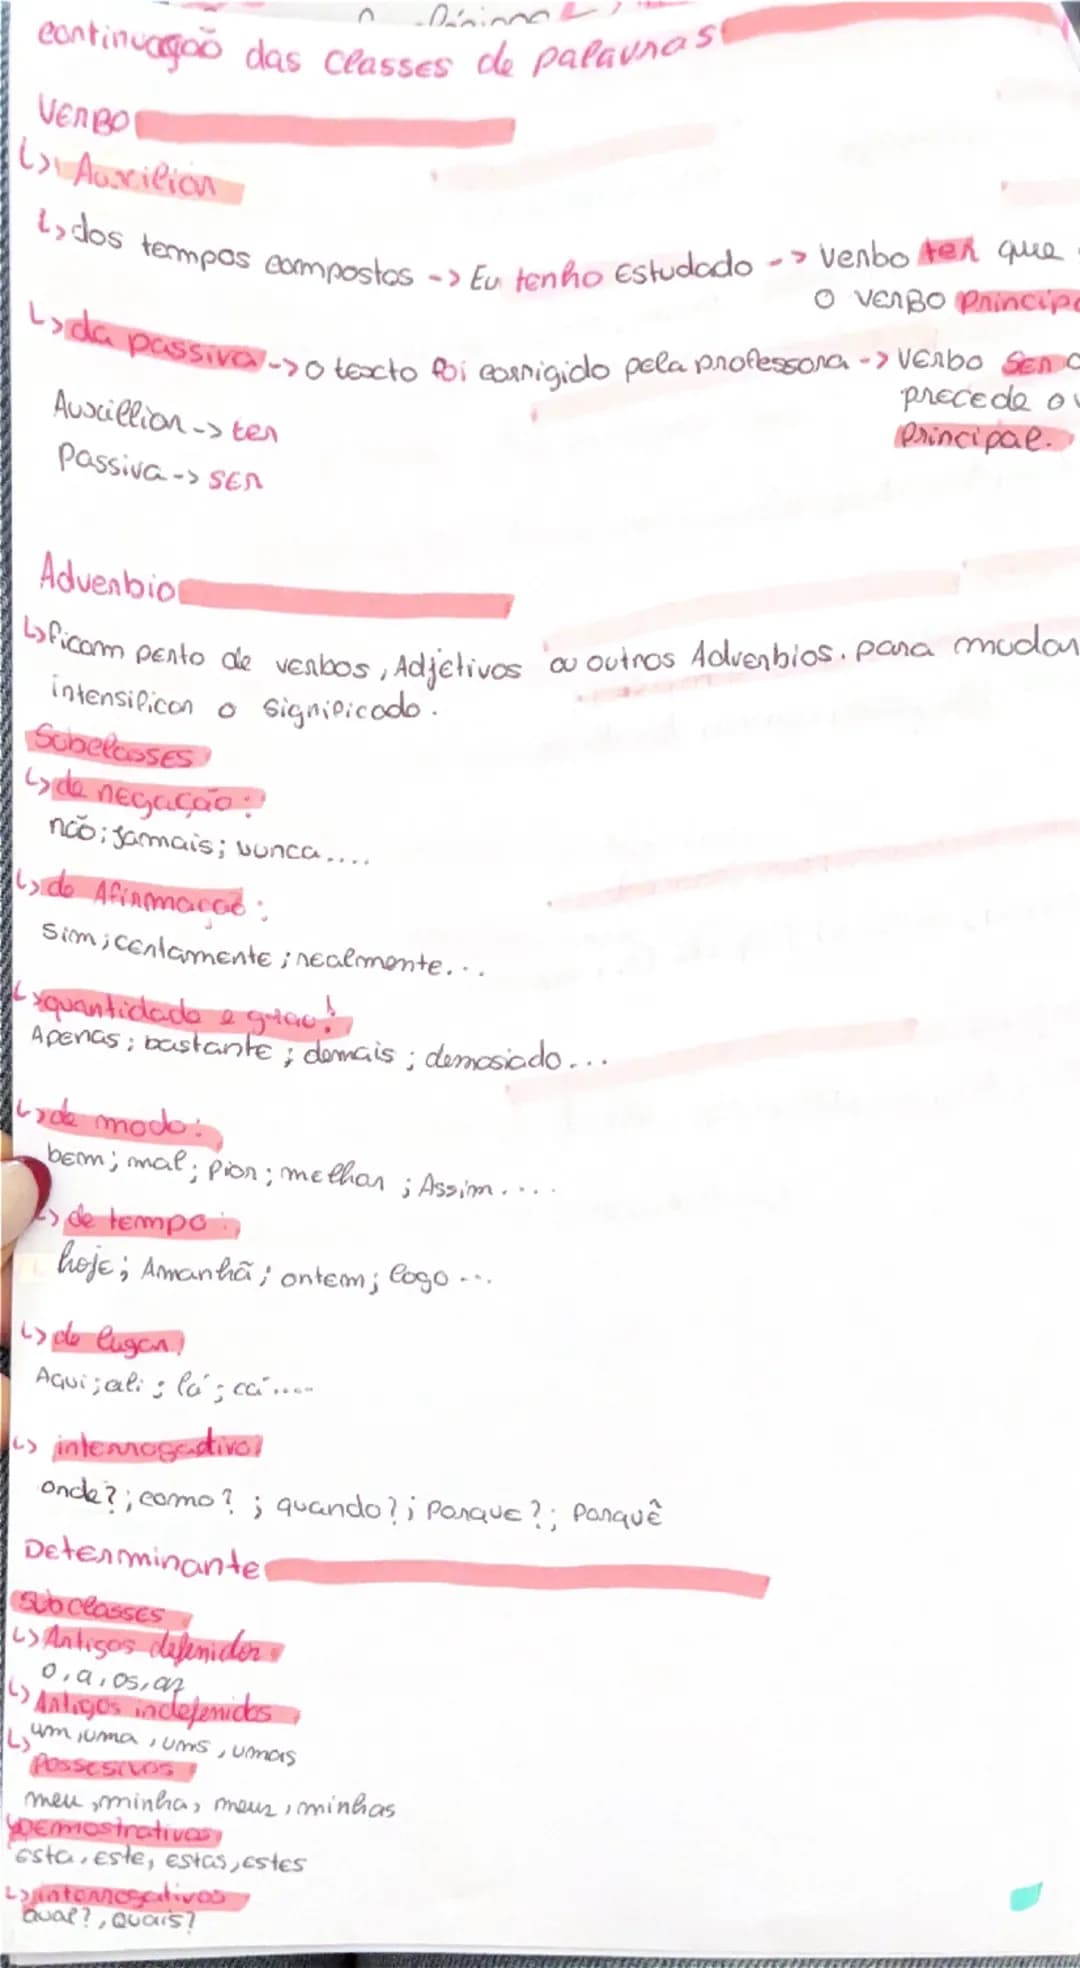 continuação das classes de palavras
VERBO
↳ Auxiliar
↳ dos tempos compostos -> Eu tenho Estudado -> verbo ter que
o VERBO Princip
↳ da passiva -> o texto foi corrigido pela professora -> VERBO Ser
precede o
Principal.
Auxilliar -> ter
Passiva -> SER
Adverbio
↳ ficam perto de verbos, Adjetivos ou outros Adverbios. para mudar
intensificar o significado.
Subclasses
↳ de negação:
não; jamais; nunca....
↳ de Afirmação:
Sim; certamente; realmente...
↳ quantidade e grau:
Apenas; bastante; demais; demasiado...
↳ de modo:
bem; mal; pior; melhor; Assim....
↳ de tempo:
hoje; Amanhã; ontem; logo...
↳ de lugar
Aqui; ali; lá; cá.....
↳ interrogativo
onde?; como?; quando?; Porque?; Porquê
Determinante
Subclasses
↳ Artigos defenidos
o, a, os, as
↳ Artigos indefenidos
um, uma, ums, umas
↳ Possesivos
meu, minha, meus, minhas
↳ Demostrativos
Esta, Este, Estas, Estes
↳ interrogativos
Qual?, Quais?